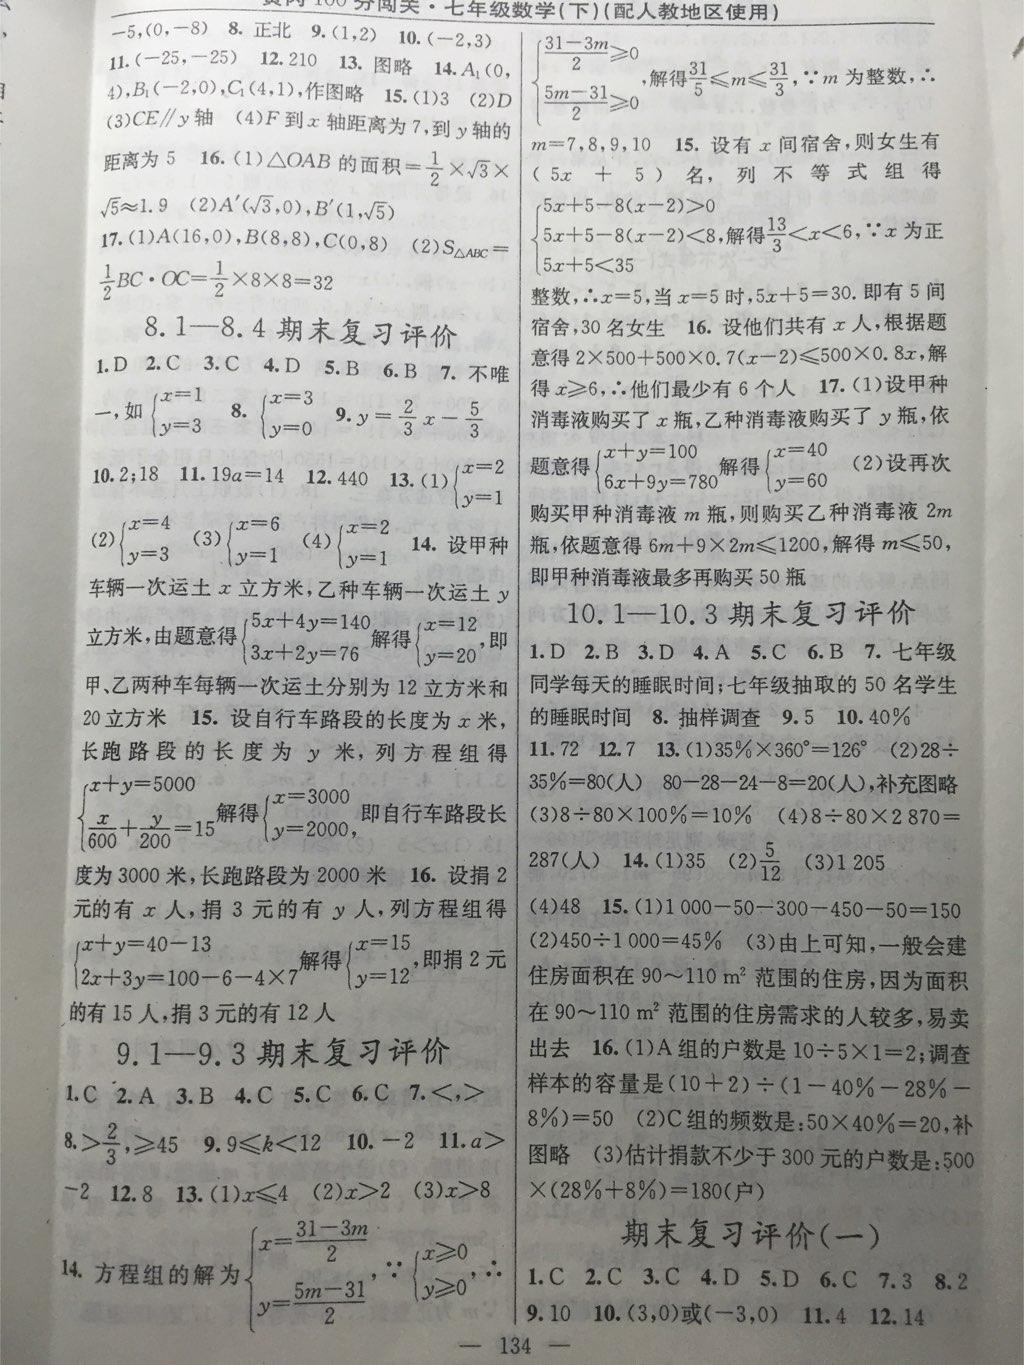 黄冈100分闯关·七年级数学(下)(配人教地区使用)
-5,(0,-8) 8. 正北 9.(1,2) 10.(-2,3)
11.(-25,-25) 12.210 13. 图略 14.A₁(0,
4),B₁(-2,0),C₁(4,1),作图略 15.(1)3 (2)D
(3)CE∥y轴 (4)F到x轴距离为7,到y轴的
距离为5 16.(1)△OAB的面积=1/2×√3×
√5≈1.9 (2)A′(√3,0),B′(1,√5)
17.(1)A(16,0),B(8,8),C(0,8) (2)S△ABC=
1/2BC·OC=1/2×8×8=32
8.1—8.4期末复习评价
1.D 2.C 3.C 4.D 5.B 6.B 7. 不唯
一,如{x=1 y=3 8. {x=3 y=0 9.y=2/3x-5/3
10.2;18 11.19a=14 12.440 13.(1){x=2 y=1
(2){x=4 y=3 (3){x=6 y=1 (4){x=2 y=1 14. 设甲种
车辆一次运土x立方米,乙种车辆一次运土y
立方米,由题意得{5x+4y=140 3x+2y=76 解得{x=12 y=20,即
甲、乙两种车每辆一次运土分别为12立方米和
20立方米 15. 设自行车路段的长度为x米,
长跑路段的长度为y米,列方程组得
{x+y=5000 x/600+y/200=15 解得{x=3000 y=2000, 即自行车路段长
度为3000米,长跑路段为2000米 16. 设捐2
元的有x人,捐3元的有y人,列方程组得
{x+y=40-13 2x+3y=100-6-4×7 解得{x=15 y=12,即捐2元
的有15人,捐3元的有12人
9.1—9.3期末复习评价
1.C 2.A 3.B 4.C 5.C 6.C 7.<,>
8.>2/3,≥45 9.9≤k<12 10.-2 11.a>
-2 12.8 13.(1)x≤4 (2)x>2 (3)x>8
14. 方程组的解为{x=(31-3m)/2 y=(5m-31)/2,∵{x≥0 y≥0,∴
{(31-3m)/2≥0 (5m-31)/2≥0,解得31/5≤m≤31/3,∵m为整数,∴
m=7,8,9,10 15. 设有x间宿舍,则女生有
(5x+5)名,列不等式组得
{5x+5-8(x-2)>0 5x+5-8(x-2)<8 5x+5<35,解得13/3<x<6,∵x为正
整数,∴x=5,当x=5时,5x+5=30.即有5间
宿舍,30名女生 16. 设他们共有x人,根据题
意得2×500+500×0.7(x-2)≤500×0.8x,解
得x≥6,∴他们最少有6个人 17.(1)设甲种
消毒液购买了x瓶,乙种消毒液购买了y瓶,依
题意得{x+y=100 6x+9y=780 解得{x=40 y=60 (2)设再次
购买甲种消毒液m瓶,则购买乙种消毒液2m
瓶,依题意得6m+9×2m≤1200,解得m≤50,
即甲种消毒液最多再购买50瓶
10.1—10.3期末复习评价
1.D 2.B 3.D 4.A 5.C 6.B 7. 七年级
同学每天的睡眠时间;七年级抽取的50名学生
的睡眠时间 8. 抽样调查 9.5 10.40%
11.72 12.7 13.(1)35%×360°=126° (2)28÷
35%=80(人) 80-28-24-8=20(人),补充图略
(3)8÷80×100%=10% (4)8÷80×2 870=
287(人) 14.(1)35 (2)5/12 (3)1 205
(4)48 15.(1)1 000-50-300-450-50=150
(2)450÷1 000=45% (3)由上可知,一般会建
住房面积在90~110 m²范围的住房,因为面积
在90~110 m²范围的住房需求的人较多,易卖
出去 16.(1)A组的户数是10÷5×1=2;调查
样本的容量是(10+2)÷(1-40%-28%-
8%)=50 (2)C组的频数是:50×40%=20,补
图略 (3)估计捐款不少于300元的户数是:500
×(28%+8%)=180(户)
期末复习评价(一)
1.C 2.C 3.C 4.D 5.D 6.C 7.3 8.2
9.10 10.(3,0)或(-3,0) 11.4 12.14
— 134 —